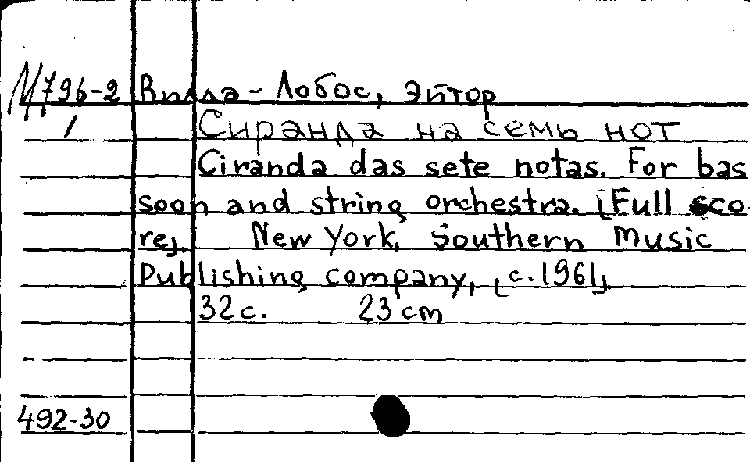 М796-2 Вилла-Лобос, Эйтор
1 Сиранда на семь нот
Ciranda das sete notas. For bas
soon and string orchestra. [Full sco
re]. New York, Southern Music
Publishing company, [c.1961].
32 c. 23 cm
492-30